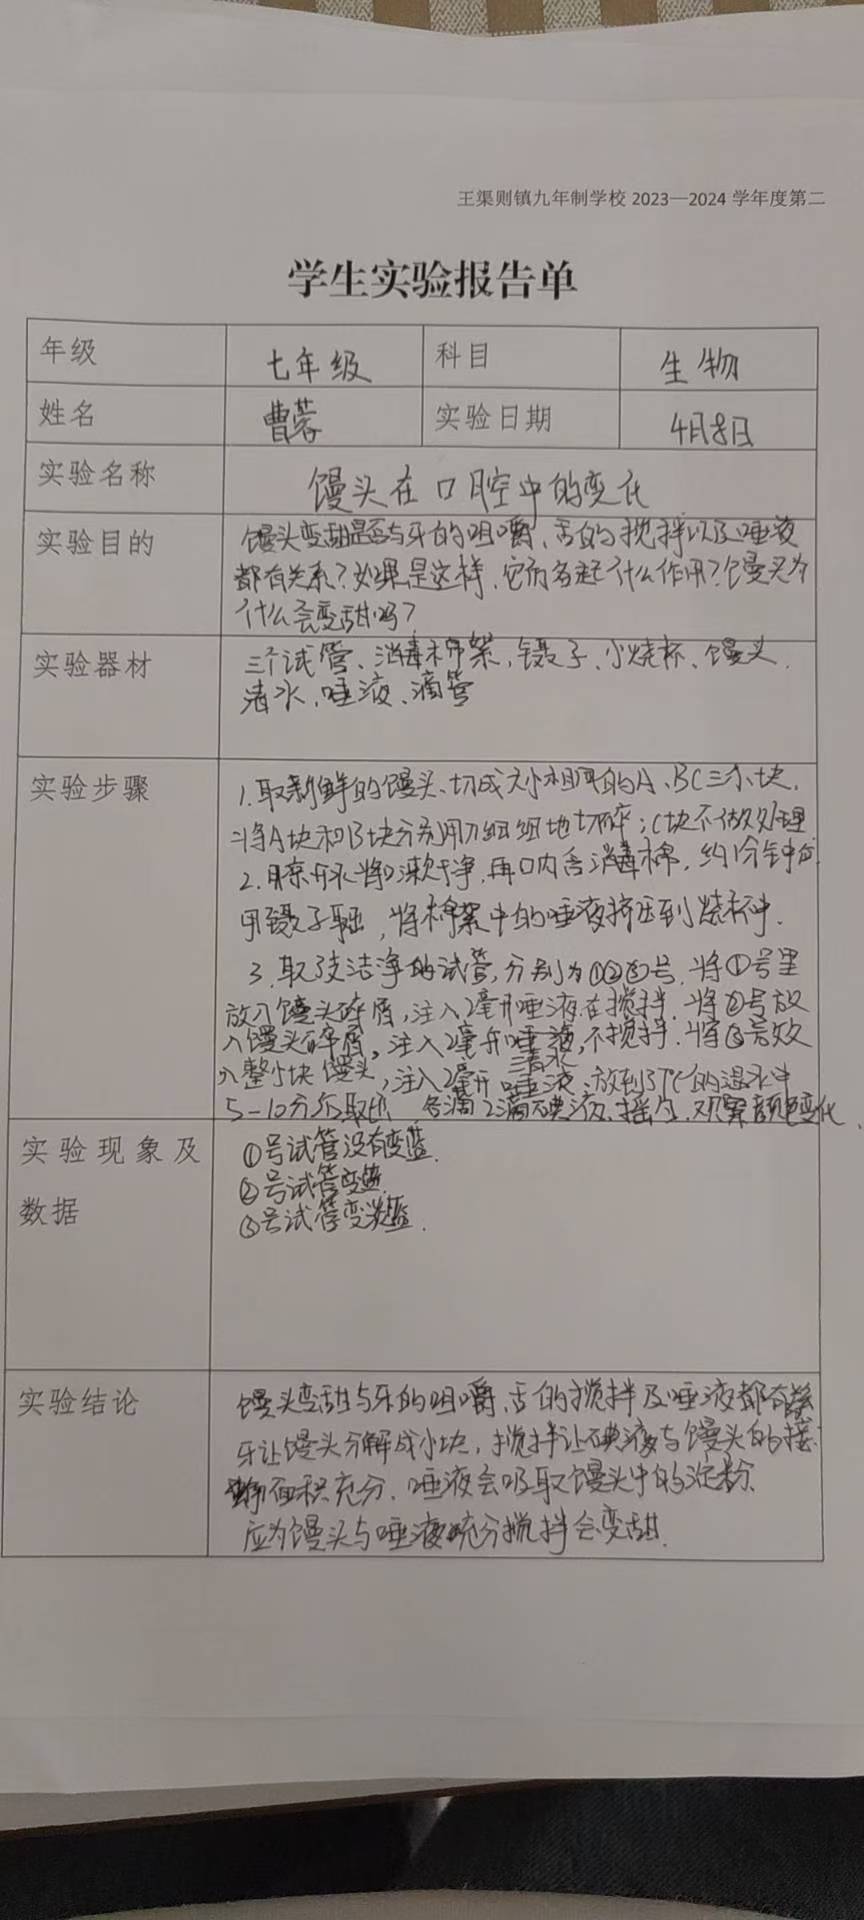 王渠则镇九年制学校 2023—2024 学年度第二
学生实验报告单
年级 七年级 科目 生物
姓名 曹蓉 实验日期 4月8日
实验名称 馒头在口腔中的变化
实验目的 馒头变甜是否与牙的咀嚼、舌的搅拌以及唾液
都有关系?如果是这样,它们各起什么作用?馒头为
什么会变甜吗?
实验器材 三个试管、消毒棉絮,镊子、小烧杯、馒头、
清水、唾液、滴管
实验步骤 1.取新鲜的馒头、切成大小相同的A、BC三小块,
将A块和B块分别用刀细细地切碎;C块不做处理
2.用凉开水将口漱干净,再口内含消毒棉,约1分钟后
用镊子取出,将棉絮中的唾液挤压到烧杯中.
3.取3支洁净的试管,分别为①②③号,将①号里
放入馒头碎屑,注入2毫升唾液在搅拌.将②号放
入馒头碎屑,注入2毫升清水,不搅拌.将③号放
入整小块馒头,注入2毫升唾液,放到37℃的温水中
5-10分后取出 各滴2滴碘液、摇匀、观察颜色变化、
实验现象及 ①号试管没有变蓝.
数据 ②号试管变蓝
③号试管变淡蓝.
实验结论 馒头变甜与牙的咀嚼,舌的搅拌及唾液都有关
牙让馒头分解成小块,搅拌让碘液与馒头的接
面积充分.唾液会吸取馒头中的淀粉.
应为馒头与唾液充分搅拌会变甜.